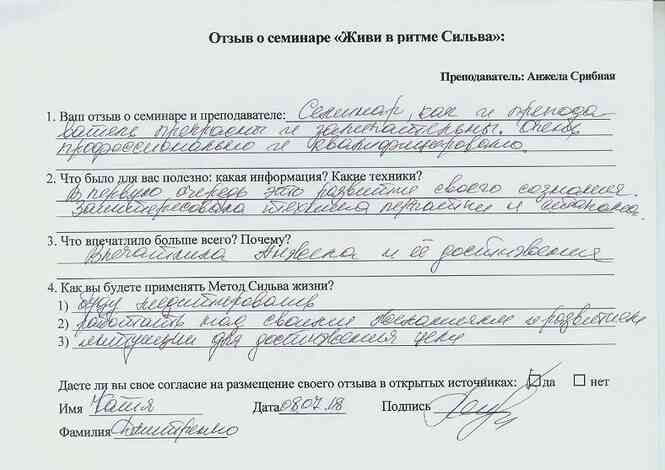 Отзыв о семинаре «Живи в ритме Сильва»:
Преподаватель: Анжела Срибная
1. Ваш отзыв о семинаре и преподавателе: Семинар, как и препода
ватель прекрасны и занимательны. Очень
профессионально и квалифицировано.
2. Что было для вас полезно: какая информация? Какие техники?
В первую очередь это развитие своего сознания.
Заинтересовала техника перчатки и
3. Что впечатлило больше всего? Почему?
Впечатлила Анжела и её достижения
4. Как вы будете применять Метод Сильва жизни?
1) буду медитировать
2) работать над своими желаниями и развитием
3) интуиции для достижения цели
Даете ли вы свое согласие на размещение своего отзыва в открытых источниках: да нет
Имя Катя Дата 08.07.18 Подпись
Фамилия Дмитренко